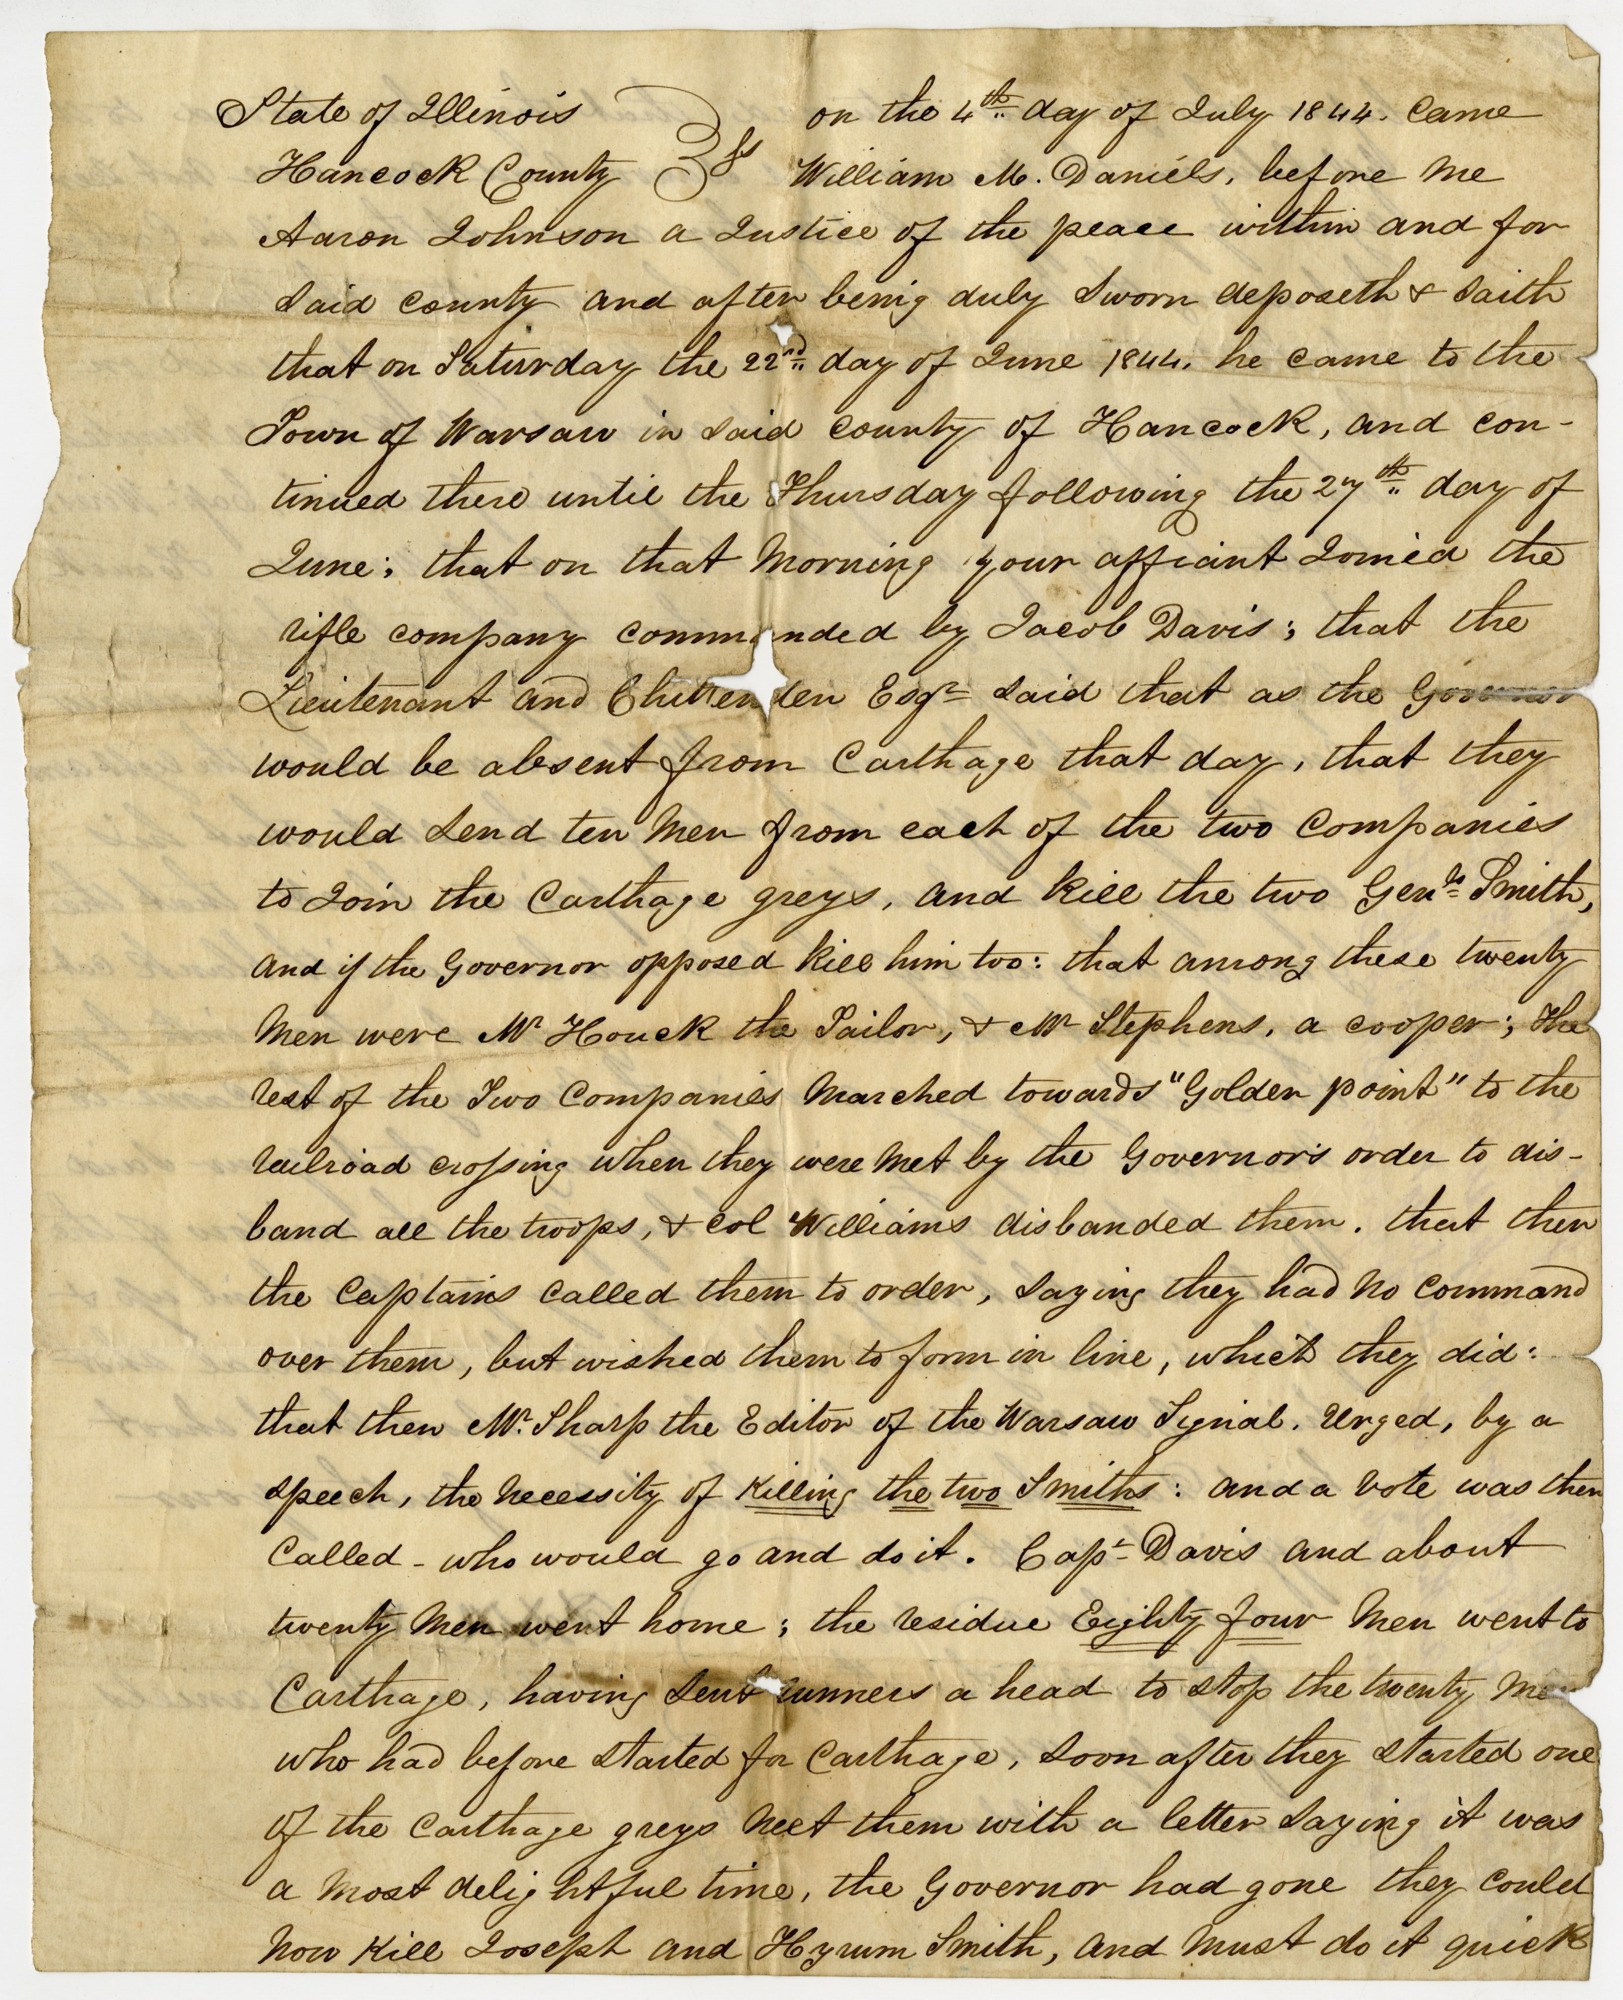 State of Illinois } ss on the 4th day of July 1844. Came
Hancock County William M. Daniels, before me
Aaron Johnson a Justice of the peace within and for
said county and after being duly sworn deposeth & saith
that on Saturday the 22nd day of June 1844. he came to the
Town of Warsaw in said county of Hancock, and con-
tinued there until the Thursday following the 27th day of
June; that on that morning your affiant Joined the
rifle company commanded by Jacob Davis; that the
Lieutenant and Chittenden Esqr said that as the Governor
would be absent from Carthage that day, that they
would send ten men from each of the two Companies
to Join the Carthage greys, and kill the two Genls Smith,
and if the Governor opposed kill him too: that among these twenty
men were Mr Houck the Tailor, & Mr Stephens, a cooper; the
rest of the Two Companies marched towards "Golden point" to the
railroad crossing when they were met by the Governor's order to dis-
band all the troops, & Col Williams disbanded them. that then
the Captains called them to order, saying they had no command
over them, but wished them to form in line, which they did:
that then Mr. Sharp the Editor of the Warsaw Signal. Urged, by a
speech, the necessity of killing the two Smiths: and a vote was then
called - who would go and do it. Capt Davis and about
twenty men went home; the residue Eighty four men went to
Carthage, having sent runners a head to stop the twenty men
who had before started for Carthage, soon after they started one
of the Carthage greys meet them with a letter saying it was
a most delightful time, the Governor had gone they could
now kill Joseph and Hyrum Smith, and must do it quick